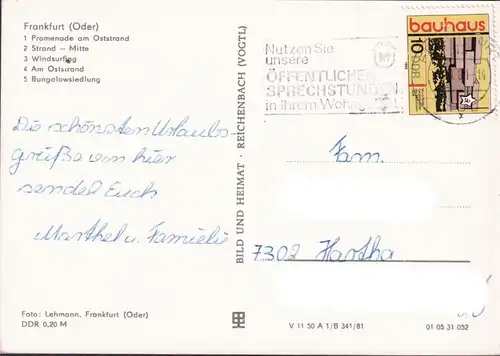 Frankfurt (Oder)
1 Promenade am Oststrand
2 Strand – Mitte
3 Windsurfing
4 Am Oststrand
5 Bungalowsiedlung
Die schönsten Urlaubs-
grüße von hier
sendel Euch
Marthel u. Familie
Foto: Lehmann, Frankfurt (Oder)
DDR 0,20 M
BILD UND HEIMAT · REICHENBACH (VOGTL)
Nutzen Sie
unsere
ÖFFENTLICHEN
SPRECHSTUNDEN
in Ihrem
bauhaus
10 DDR
Fam.
7302 Hartha
V 11 50 A 1/B 341/81
01 05 31 052